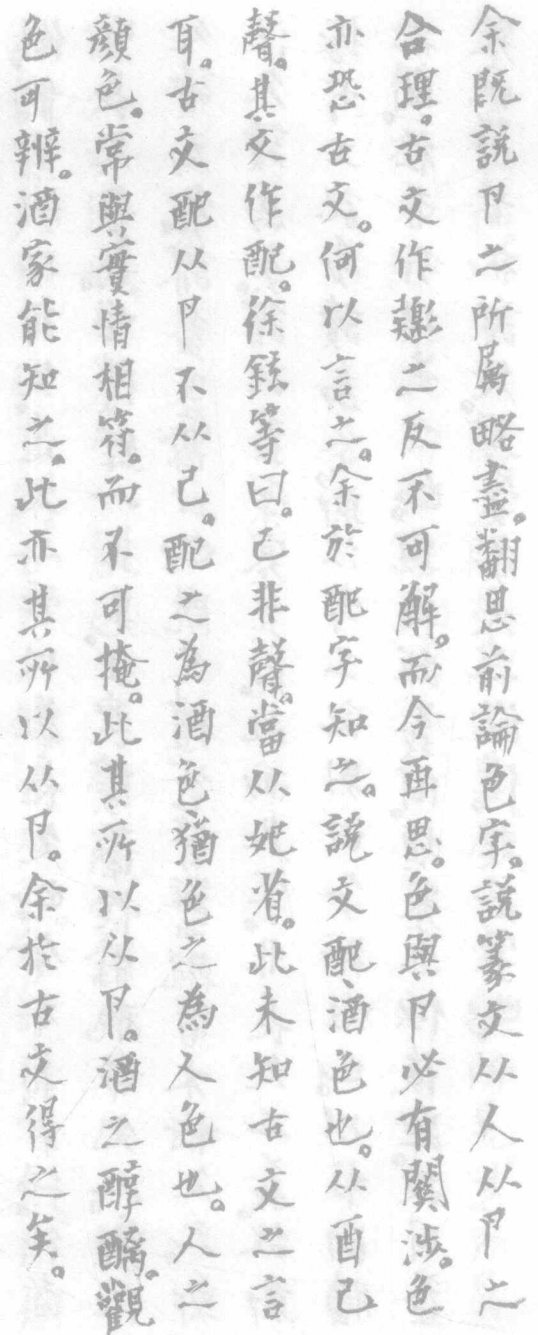 余既說卪之所屬略盡。翻思前論色字。說篆文从人从卪之
合理。古文作𢒸之反不可解。而今再思。色與卪必有關涉。色
亦恐古文。何以言之。余於配字知之。說文配、酒色也。从酉己
聲。其文作配。徐鉉等曰。己非聲。當从妃省。此未知古文之言
耳。古文配从卪不从己。配之為酒色、猶色之為人色也。人之
顏色。常與實情相符。而不可掩。此其所以从卪。酒之醇醨。觀
色可辨。酒家能知之。此亦其所以从卪。余於古文得之矣。